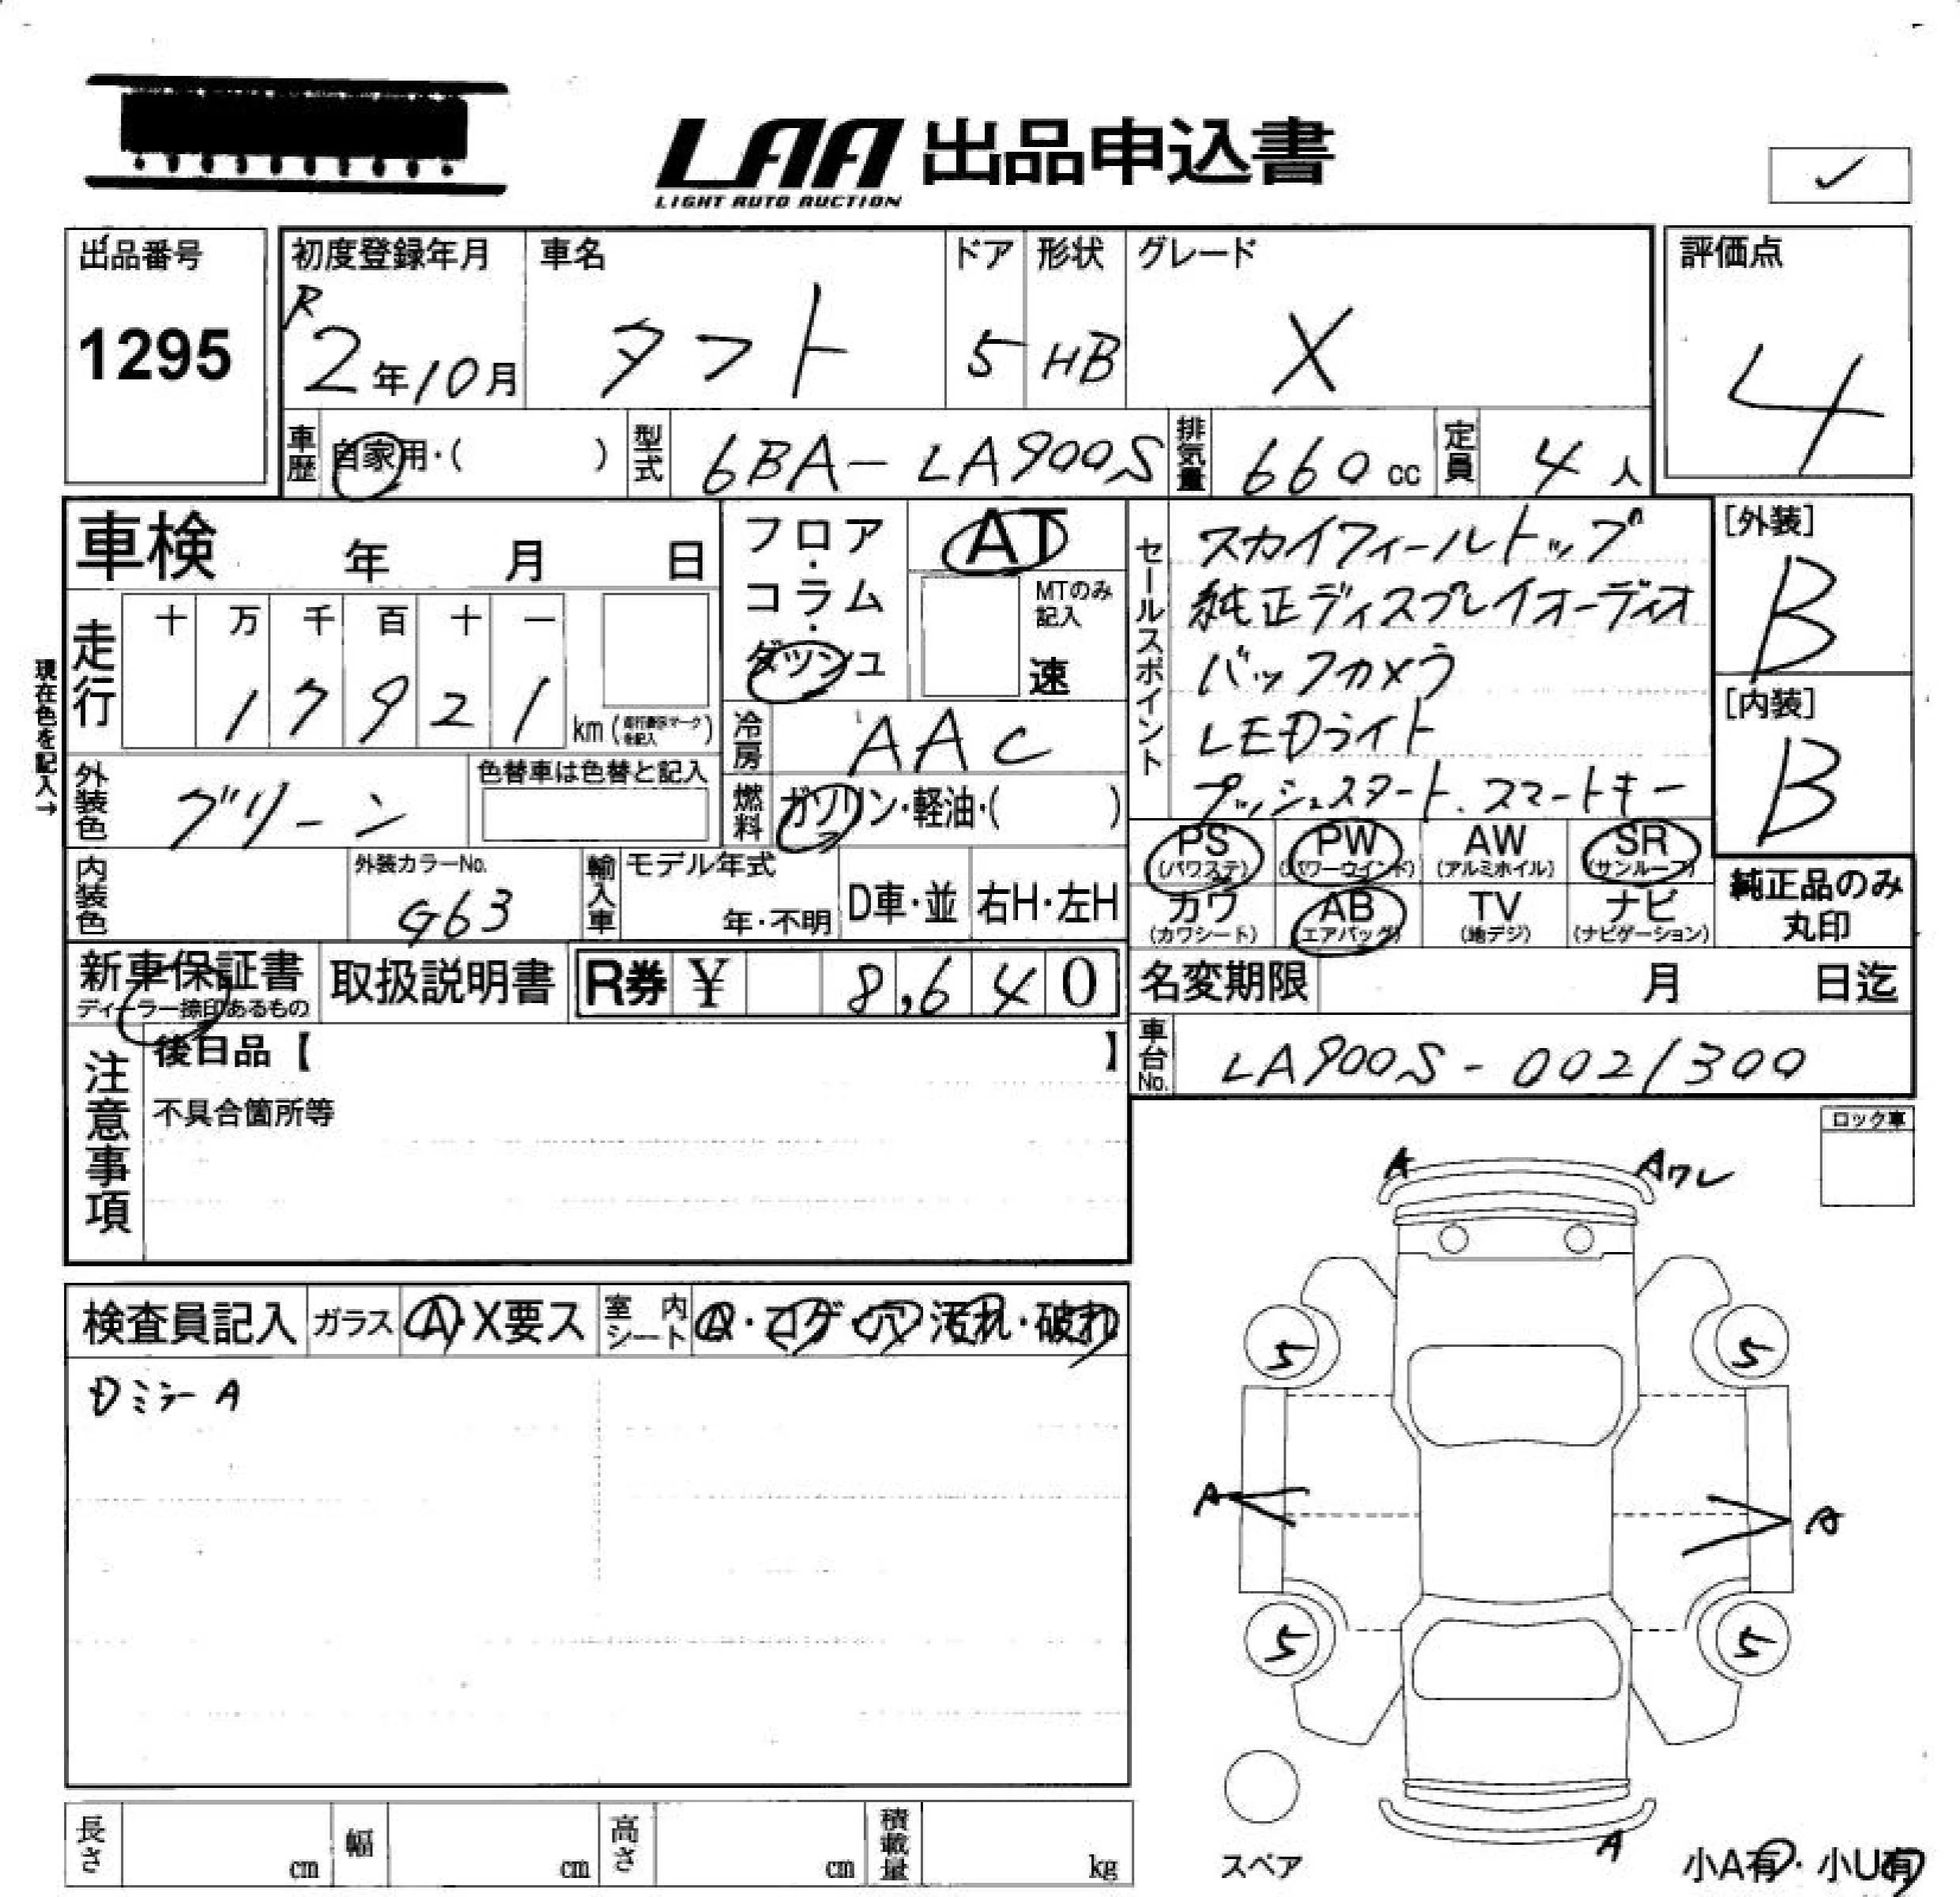 LAA 出品申込書
LIGHT AUTO AUCTION
✓
出品番号
1295
初度登録年月
R2年10月
車名
タフト
ドア
5
形状
HB
グレード
X
評価点
4
車歴
自家用・( )
型式
6BA-LA900S
排気量
660cc
定員
4人
車検 年 月 日
フロア・コラム・ダッシュ
AT
MTのみ記入
速
セールスポイント
スカイフィールトップ
純正ディスプレイオーディオ
バックカメラ
LEDライト
プッシュスタート.スマートキー
[外装]
B
[内装]
B
現在色を記入→
走行
十 万 千 百 十 一
1 7 9 2 1 km
冷房
AAC
外装色
グリーン
色替車は色替と記入
燃料
ガソリン・軽油・( )
PS (パワステ)
PW (パワーウインド)
AW (アルミホイル)
SR (サンルーフ)
カワ (カワシート)
AB (エアバッグ)
TV (地デジ)
ナビ (ナビゲーション)
純正品のみ
丸印
内装色
外装カラーNo.
G63
輸入車
モデル年式
年・不明
D車・並
右H・左H
新車保証書
ディーラー捺印あるもの
取扱説明書
R券 ¥ 8,640
名変期限 月 日迄
車台No.
LA900S-0021300
注意事項
後日品【 】
不具合箇所等
ロック車
A
Aワレ
検査員記入
ガラス
A・X要ス
室内シート
・コゲ・穴・汚れ・破れ
Dミラー A
5
5
A
A
5
5
スペア
A
小A有・小U有
長さ cm
幅 cm
高さ cm
積載量 kg